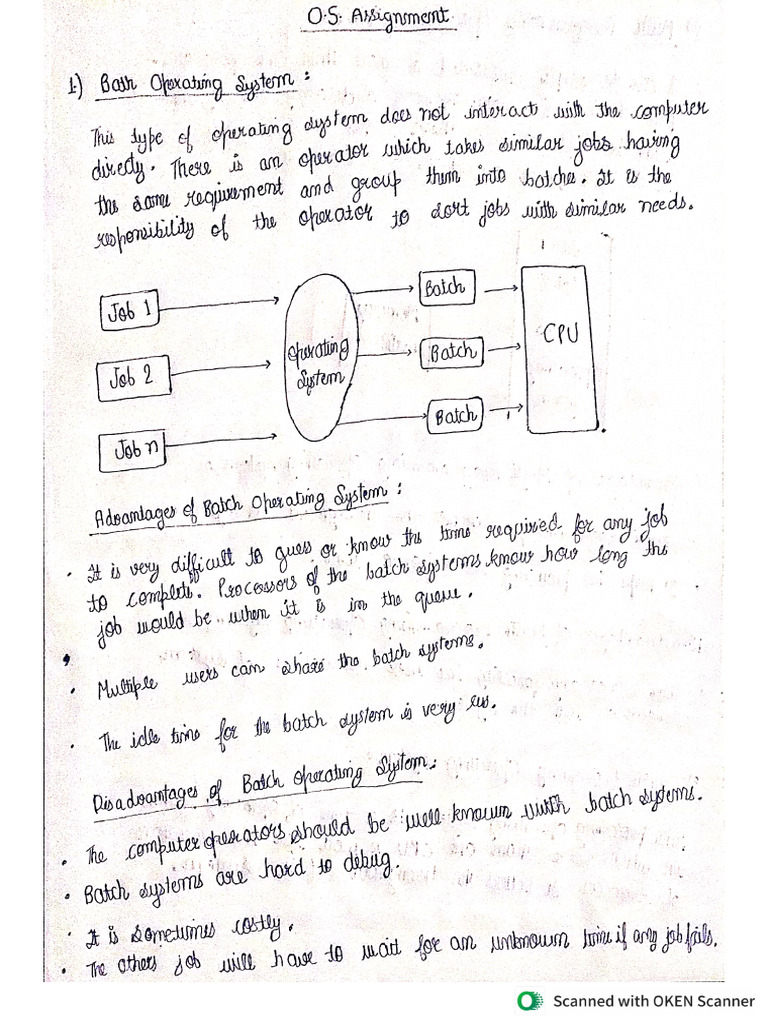 O.S. Assignment
1) Bath Operating System :
This type of operating system does not interact with the computer
directly. There is an operator which takes similar jobs having
the same requirement and group them into batches. It is the
responsibility of the operator to sort jobs with similar needs.
Job 1
Job 2
Job n
Operating
System
Batch
Batch
Batch
CPU
Advantages of Batch Operating System :
• It is very difficult to gues or know the time required for any job
to complete. Processors of the batch systems know how long the
job would be when it is in the queue.
• Multiple users can share the batch systems.
• The idle time for the batch system is very
Disadvantages of Batch Operating System :
• The computer operators should be well known with batch systems.
• Batch systems are hard to debug.
It is sometimes costly.
• The others job will have to wait for an unknown time if any job fails.
Scanned with OKEN Scanner